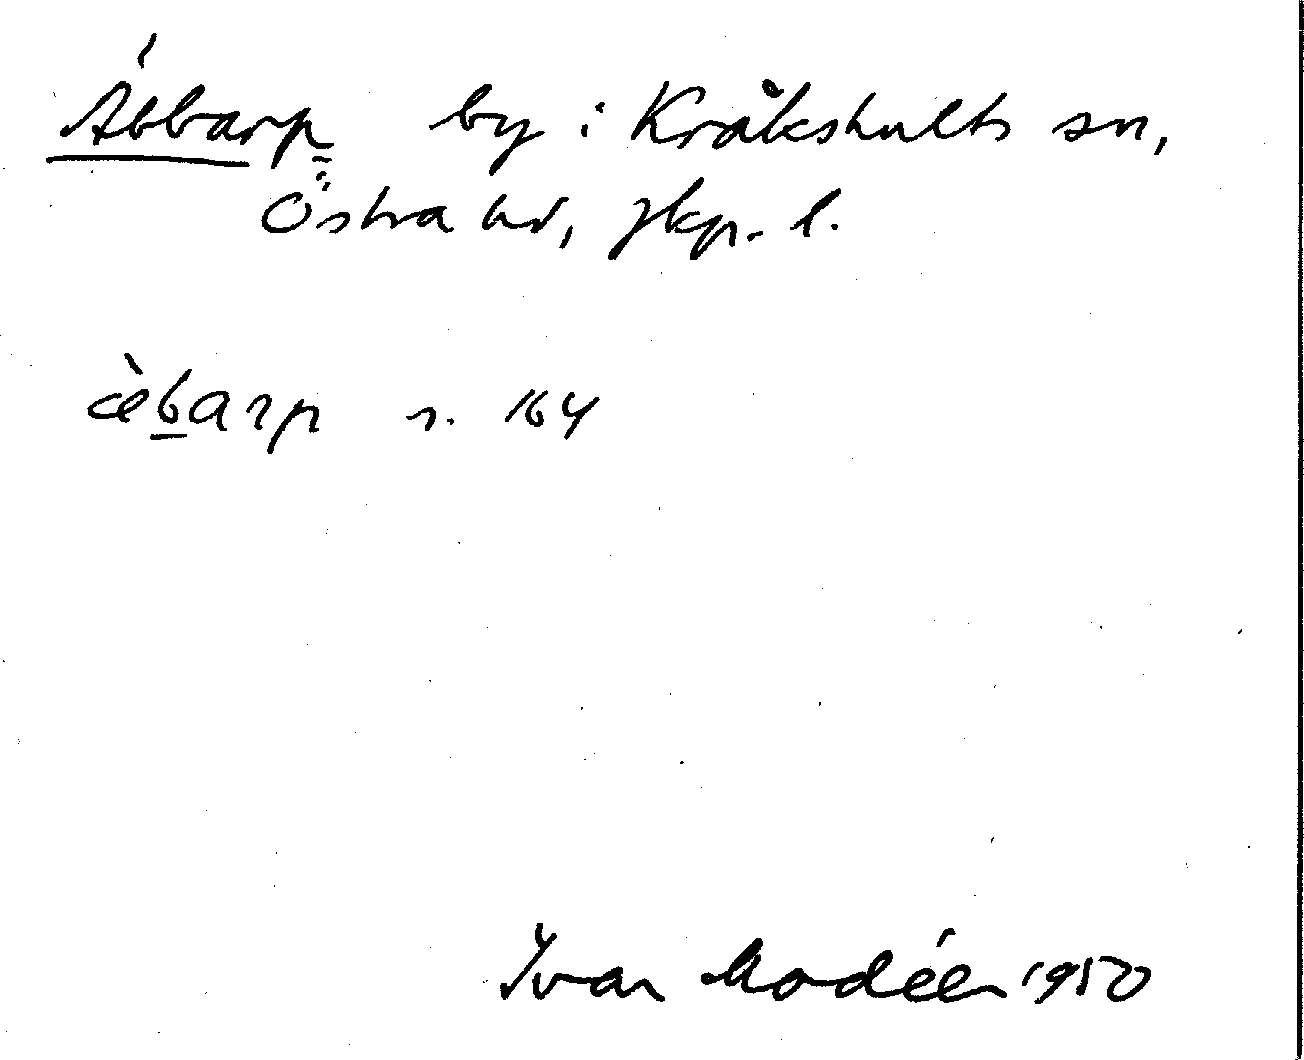 Àbbarp by i Kråkshults sn,
Östra hd, Jkp. l.
æ̀barp s. 164
Ivar Modéer 1950